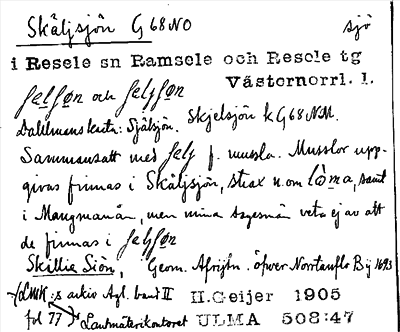 Skäljsjön G 68 NO sjö
i Resele sn Ramsele och Resele tg
Västernorrl. l.
och
Dahlmans karta: Själsjön. Skjelsjön k G 68 NM.
Sammansatt med f. mussla. Musslor upp-
givas finnas i Skäljsjön, strax n. om samt
i Mångmanån, men mina sagesmän veta ej av att
de finnas i
Skillie Siön, Geom. Afrijtn. öfver Norrlanfl. B ij 1693
(LMK:s arkiv Agl. band II H.Geijer 1905
fol 77) Lantmäterikontoret ULMA 508:47